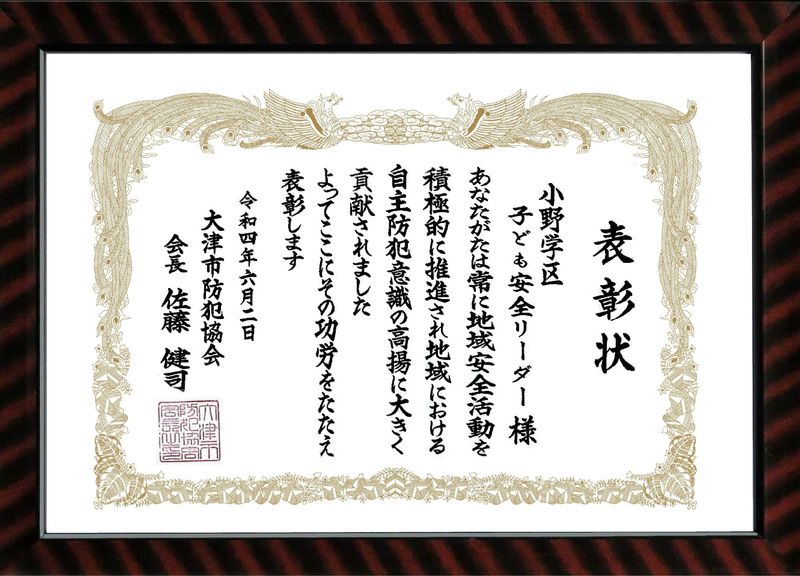 表彰状
小野学区
子ども安全リーダー 様
あなたがたは常に地域安全活動を
積極的に推進され地域における
自主防犯意識の高揚に大きく
貢献されました
よってここにその功労をたたえ
表彰します
令和四年六月二日
大津市防犯協会
会長 佐藤 健司
大津市
防犯協会
会長之印